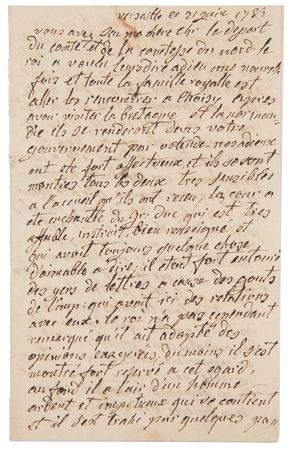 Versaille ce 21 juin 1782
vous avez su ma chere chi. le depart
du comte et de la comtesse du nord le
roi a voulu leurs dire adieu une nouvelle
fois et toute la famille royalle est
allée les rencontrer a choisy, apres
avoir visiter la bretagne et la norman
die ils se renderont dans votre
gouvernement par ostende nos adieux
ont ete fort affectueux et ils se sont
montres tous les deux tres sensibles
a l'accueil qu'ils ont recu, la cour a
ete enchantée du gr: duc qui est tres
affable, instruit bien renseigné, et
qui avoit toujours quelque chose
d'aimable a dire, il etoit fort entouré
des gens de lettres a casse des gouts
de l'imp: qui avoit ici des relations
avec eux, le roi n'a pas cependant
remarqué qu'il ait adopté des
opinions exagerées du moins il s'est
montré fort reservé a cet egard,
au fond il a l'air d'un homme
ardent et impetueux qui se contient
et il s'est trahi par quelques pa